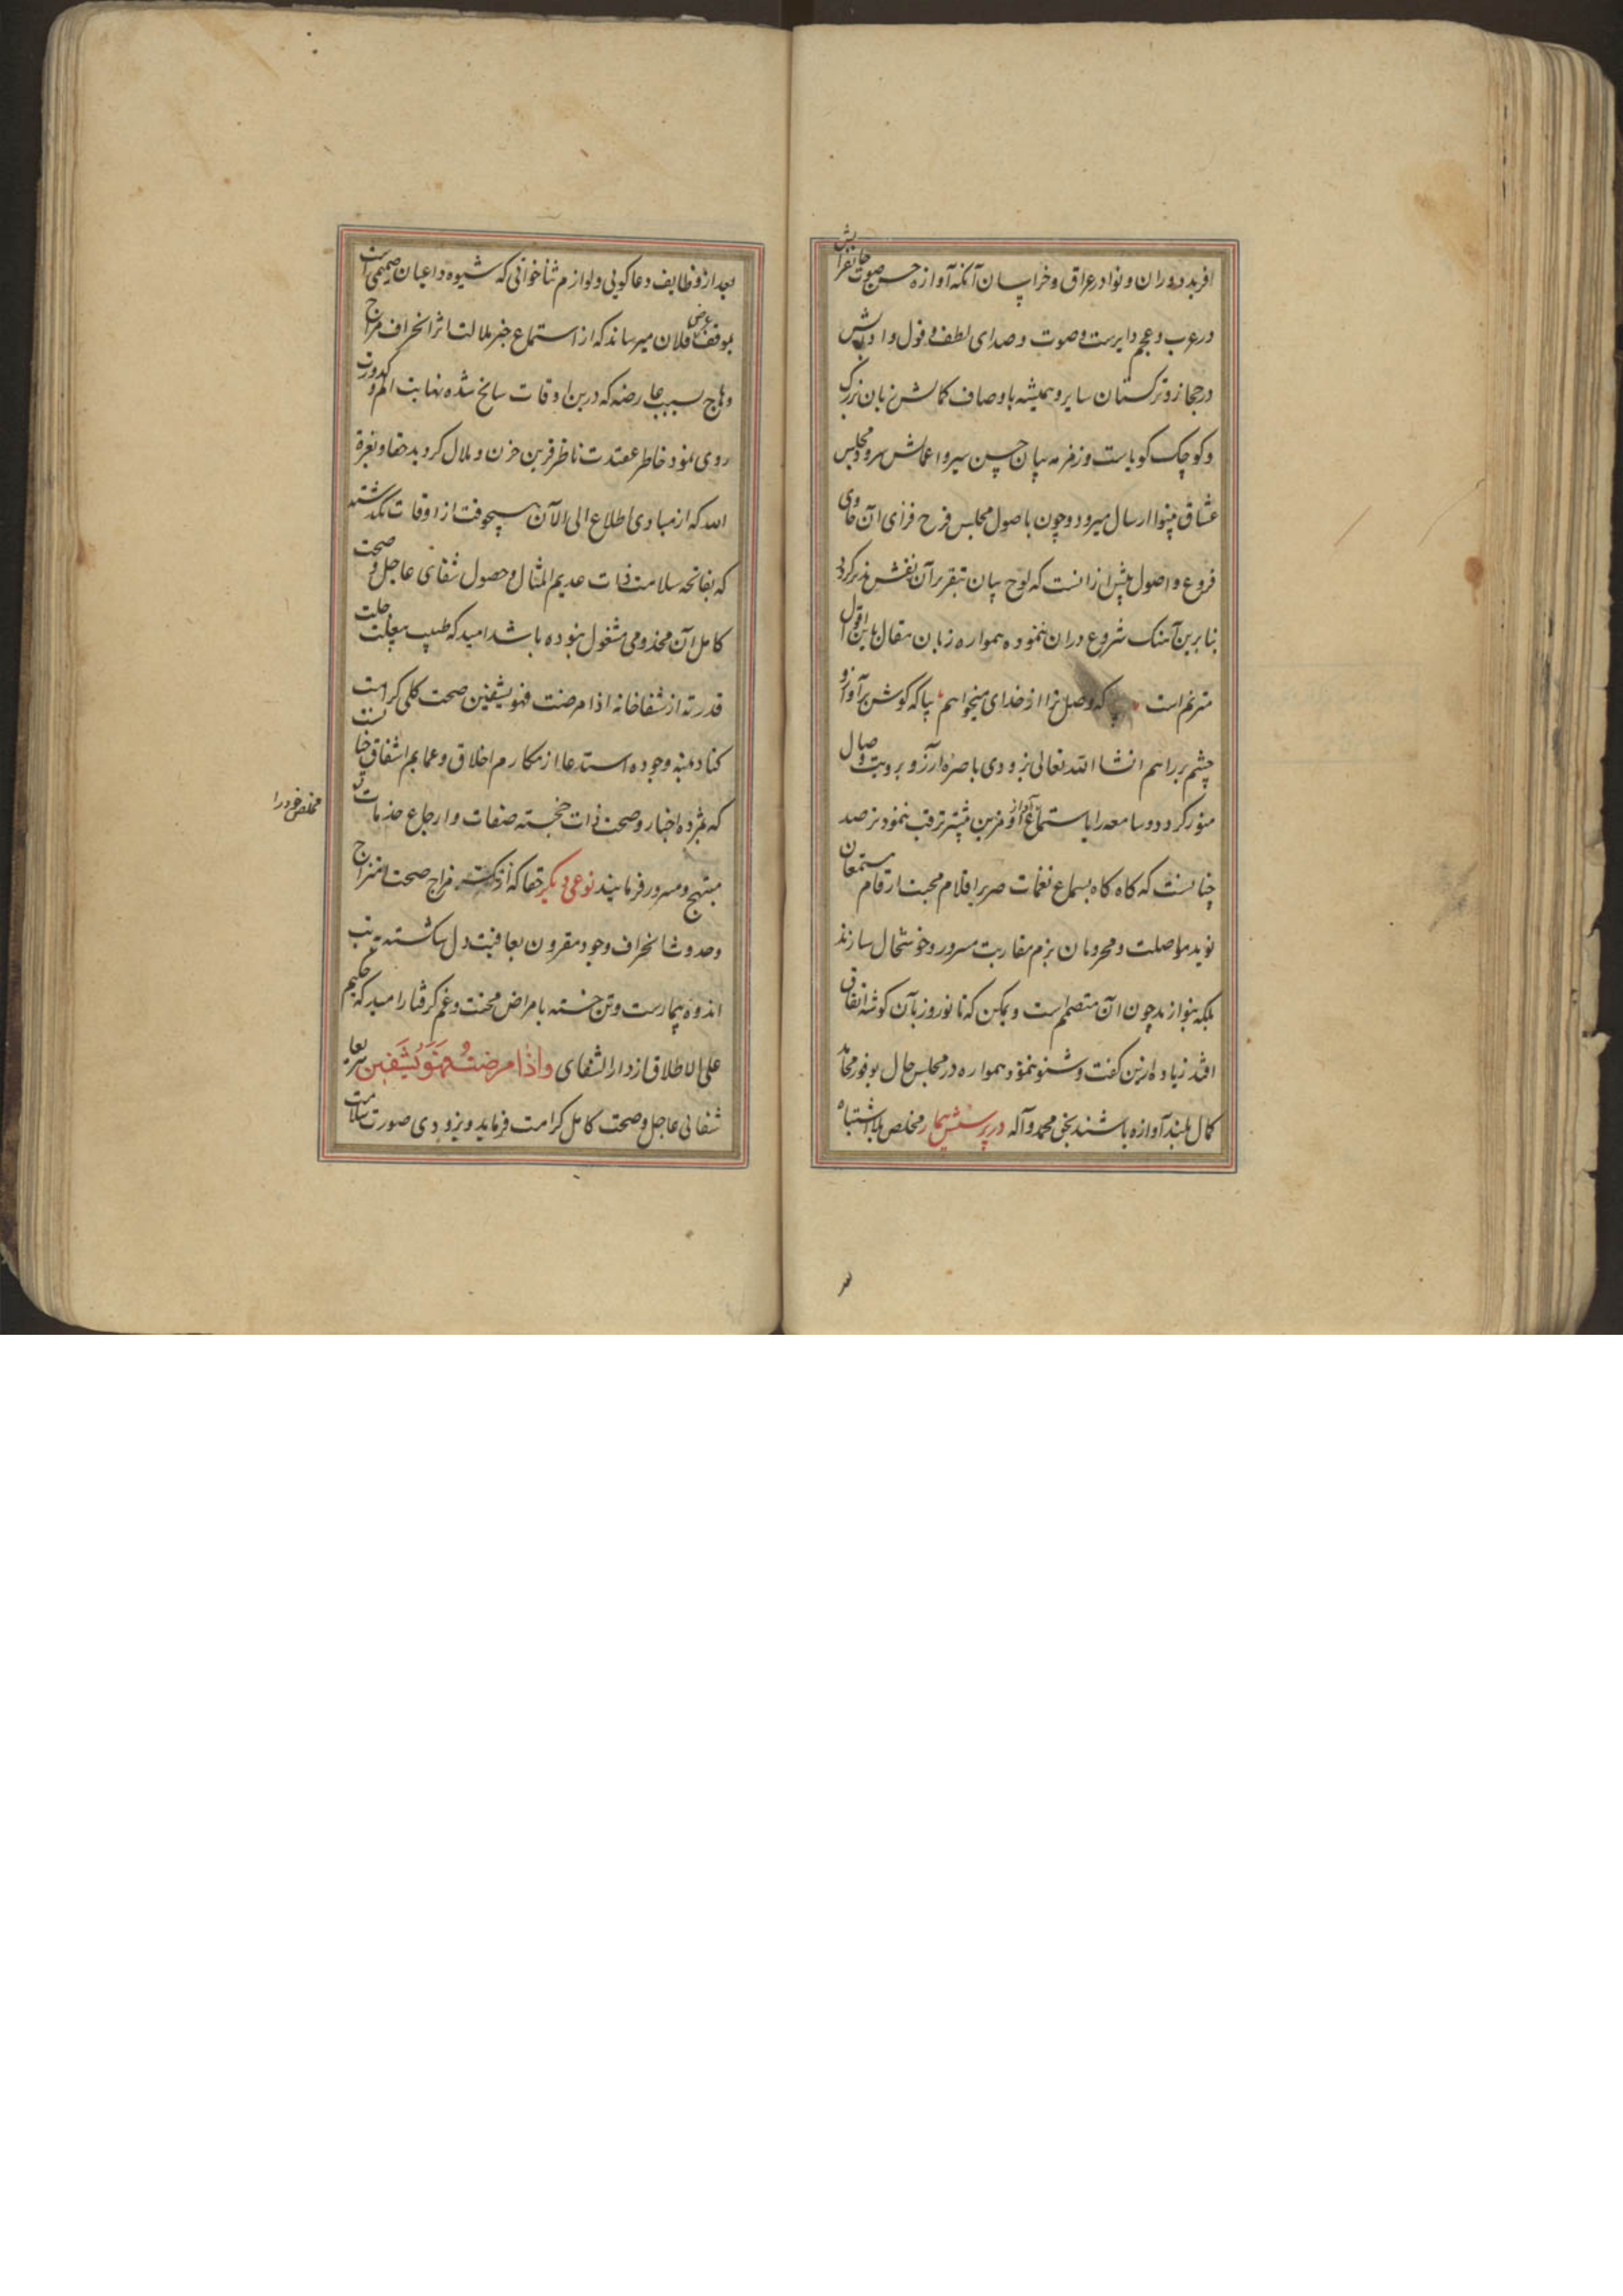 افرید دوران و نوا در عراق و خراسان آنکه آوازه حسن صوت جانفزایش
در عرب و عجم دایرست و صوت و صدای لطف قول و ادایش
در حجاز و ترکستان سایر و همیشه باوصاف کمالش زبان بزرگ
و کوچک کویاست و زمزمه بیان حسن سیر و اعمالش سرود مجلس
عشاق بینوا ارسال میرود و چون باصول مجلس فرح فزای آن حاوی
فروع و اصول پیش ازانست که لوح بیان بتقریر آن نقش پذیر کردد
بنابرین آهنک شروع دران ننموده همواره زبان مقال باین اقول
مترنم است که وصل ترا از خدای میخواهم بیا که کوش بر آواز و
چشم بر راهم انشا الله تعالی بزودی باصره آرزو برویت وصال
منور کردد و سامعه را باستماع آواز و مزین میسر ترقب نمود ترصد
چنانست که کاه کاه بسماع نغمات صریر اقلام محبت ارقام مستمعان
نوید مواصلت و محرومان بزم مقاربت مسرور و خوشحال سازند
بلکه بنوازند چون آن متصمم است و یمکن که تا نوروز بآن کوشه اتفاق
افتد زیاده ازین کفت و شنو ننمود همواره در مجلس حال بوفور محامد
کمال بلند آوازه باشند بحق محمد و آله در پرسش بیمار مخلص بلا اشتباه
بعد از وظایف دعا کویی و لوازم ثنا خوانی که شیوه داعیان صمیمی است
بموقف عرض فلان میرساند که از استماع خبر ملالت اثر انحراف مزاج
وهاج بسبب عارضه که درین اوقات سانح شده نهایت الم و کدورت
روی نمود خاطر عقیدت ناظر قرین حزن و ملال کردید حقا و بعزة
الله که از مبادی اطلاع الی الآن هیچوقت از اوقات نکذشته
که بفاتحه سلامت ذات عدیم المثال و حصول شفای عاجل و صحت
کامل آن مخدومی مشغول نبوده باشد امید که طبیب جلت
قدرته از شفاخانه اذا مرضت فهو یشفین صحت کلی کرامت
کناد بمنه و جوده استدعا از مکارم اخلاق و عمایم اشفاق
که بمژده اخبار و صحت ذات خجسته صفات و ارجاع خدمات
مخلص خود را
مبتهج و مسرور فرمایند نوعی دیگر حقا که از مزاج صحت امتزاج
و حدوث انحراف وجود مقرون بعافیت دل شکسته تب
اندوه بیمارست و تن خسته بامراض محنت و غم کرفتار امید که حکیم
علی الاطلاق از دار الشفای واذا مرضت فهو یشفین سریعا
شفائی عاجل و صحت کامل کرامت فرماید و بزودی صورت سلامت